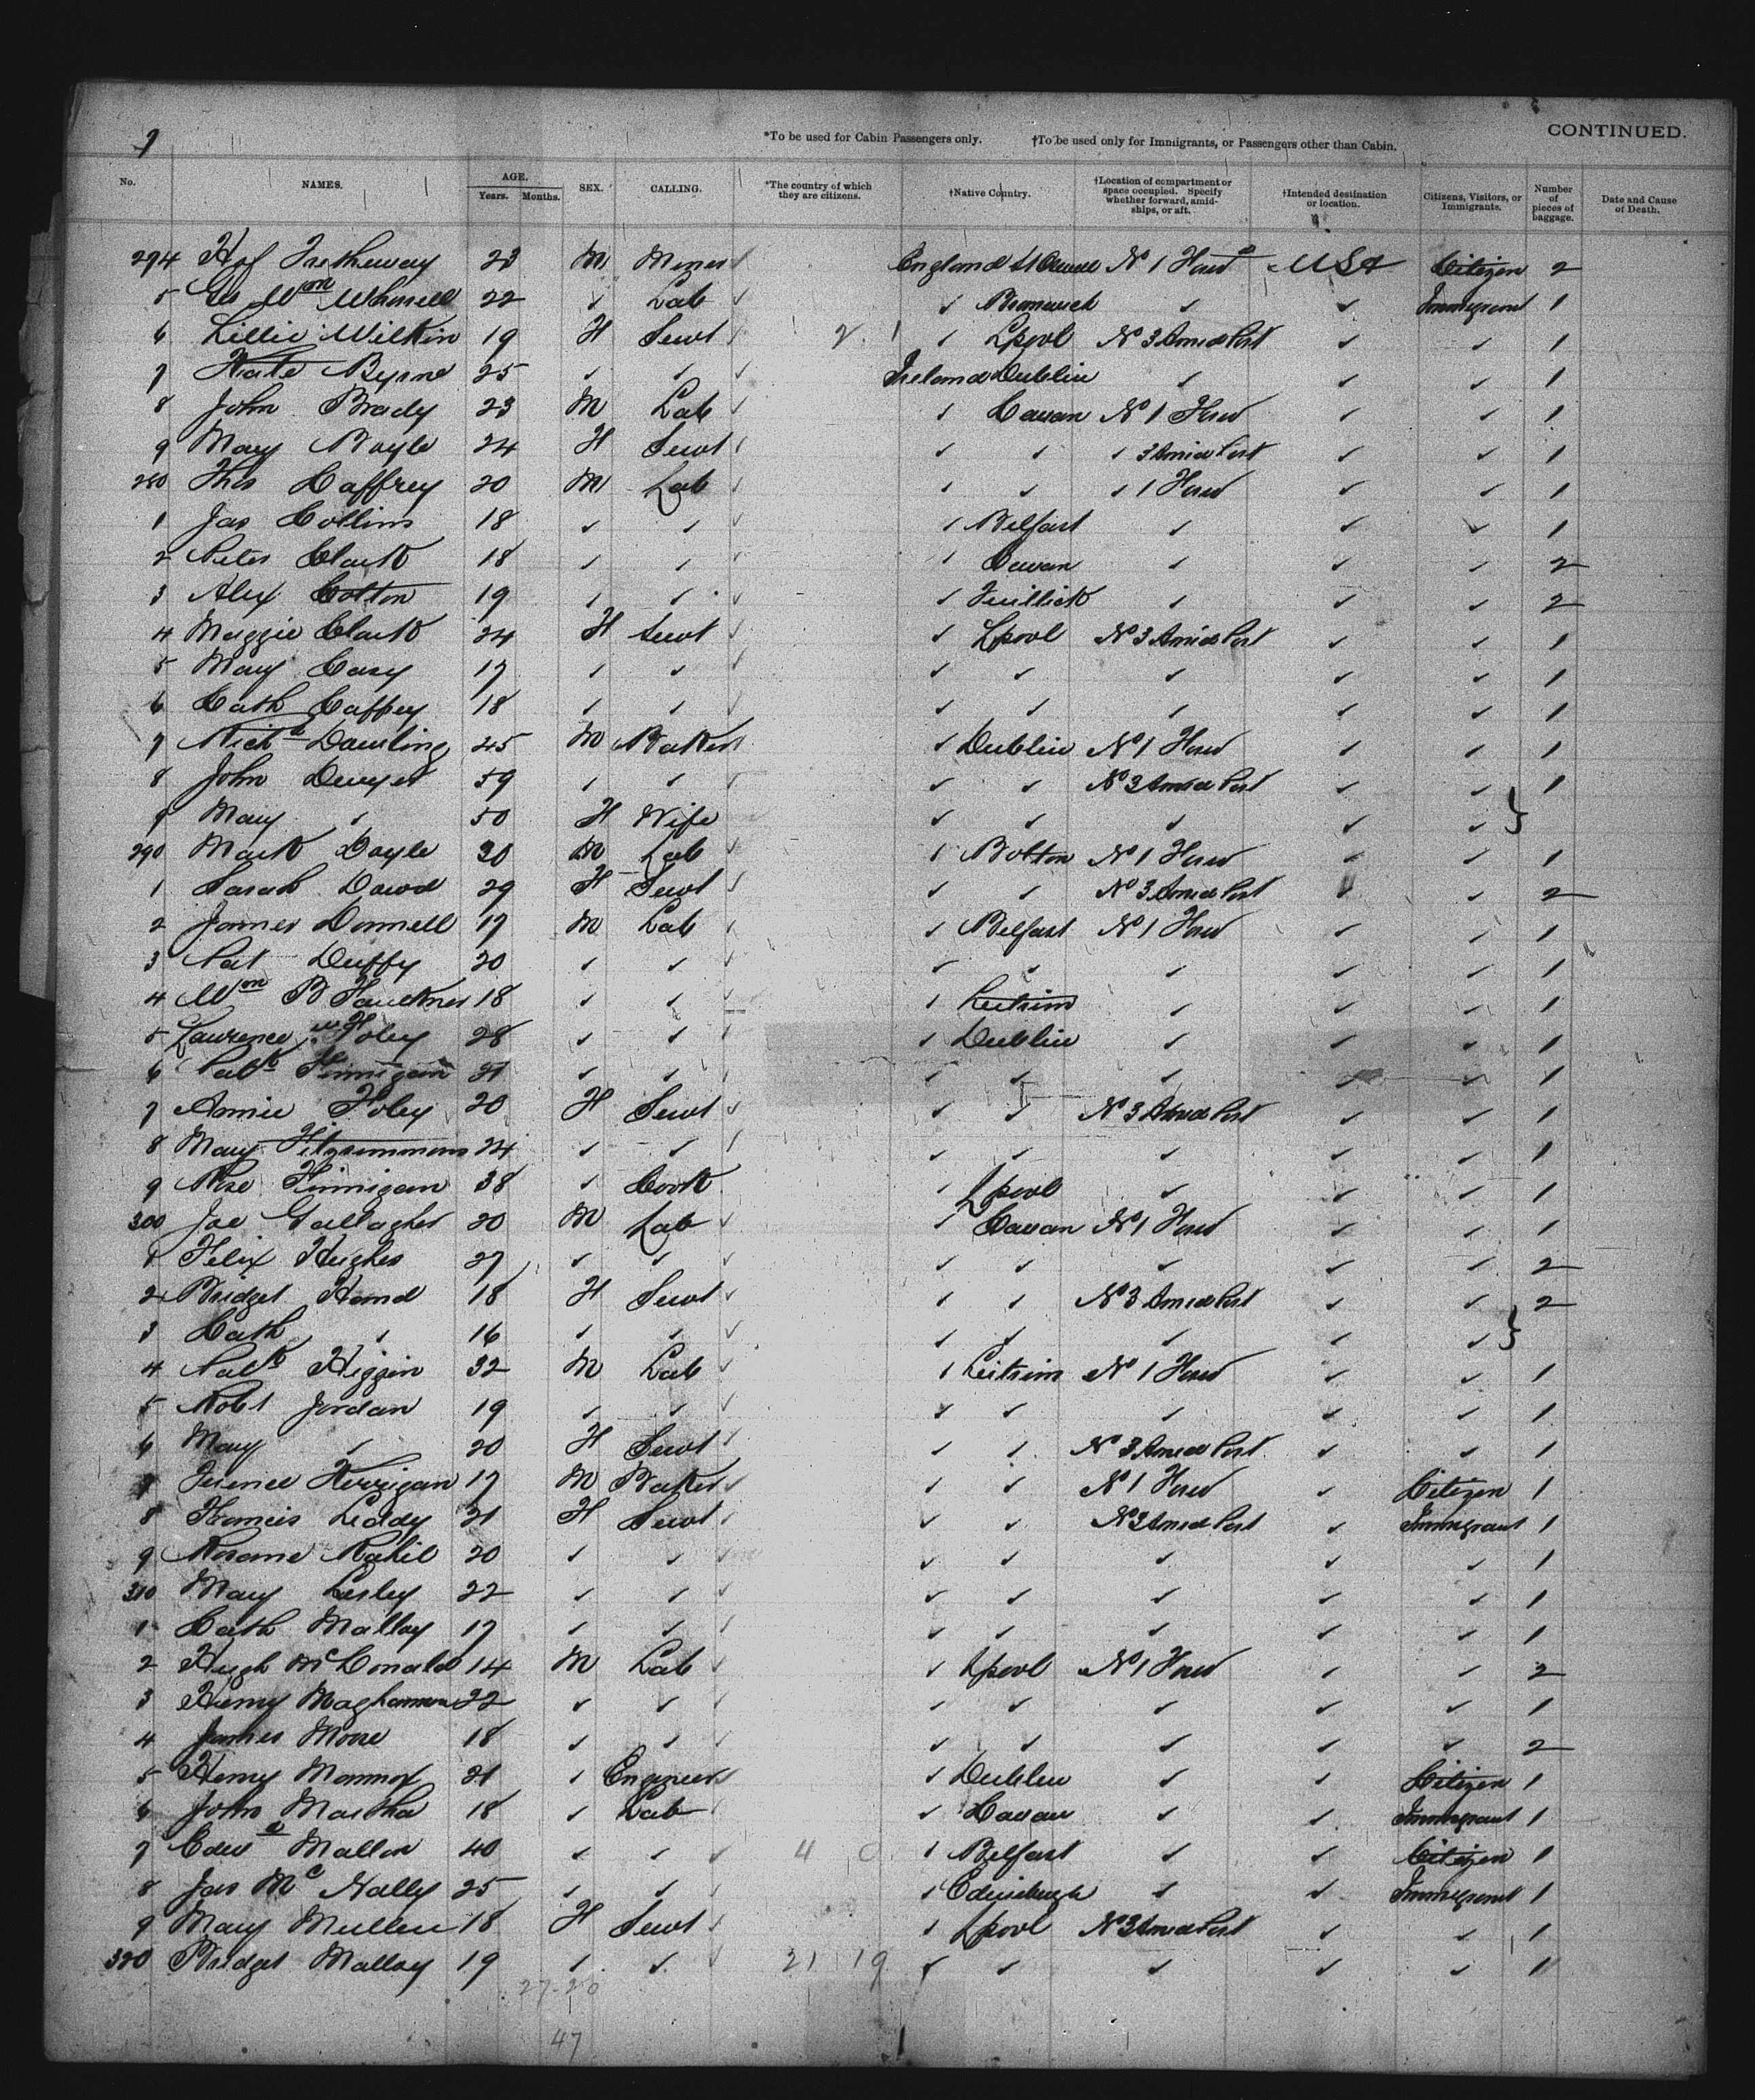 *To be used for Cabin Passengers only. †To be used only for Immigrants, or Passengers other than Cabin. CONTINUED.
No. NAMES. AGE. Years. Months. SEX. CALLING. *The country of which they are citizens. †Native Country. †Location of compartment or space occupied. Specify whether forward, amidships, or aft. †Intended destination or location. Citizens, Visitors, or Immigrants. Number of pieces of baggage. Date and Cause of Death.
274 Tretheway 23 M Miner England No 1 Forwd USA Citizen 2
5 Wm 22 ✓ Lab ✓ ✓ ✓ Immigrant 1
6 Lillie Wilkin 19 F Servt ✓ Lpool No 3 Amid Port ✓ ✓ 1
7 Kate Byrne 25 ✓ ✓ Ireland Dublin ✓ ✓ ✓ 1
8 John Brady 23 M Lab ✓ Cavan No 1 Forwd ✓ ✓ 1
9 Mary Boyle 24 F Servt ✓ ✓ ✓ 3 Amid Port ✓ ✓ 1
280 Thos Caffrey 20 M Lab ✓ ✓ ✓ 1 Forwd ✓ ✓ 1
1 Jas Collins 18 ✓ ✓ ✓ Belfast ✓ ✓ ✓ 1
2 Peter Clark 18 ✓ ✓ ✓ Cavan ✓ ✓ ✓ 2
3 Alex Cotton 19 ✓ ✓ ✓ ✓ ✓ ✓ 2
4 Maggie Clark 24 F Servt ✓ Lpool No 3 Amid Port ✓ ✓ 1
5 Mary Casy 17 ✓ ✓ ✓ ✓ ✓ ✓ ✓ 1
6 Cath Caffrey 18 ✓ ✓ ✓ ✓ ✓ ✓ ✓ 1
7 Richd Dowling 45 M Baker ✓ Dublin No 1 Forwd ✓ ✓ 1
8 John Dwyer 59 ✓ ✓ ✓ ✓ No 3 Amid Port ✓ ✓ 1
9 Mary ✓ 50 F Wife ✓ ✓ ✓ ✓ ✓ }
290 Mark Doyle 30 M Lab ✓ Bolton No 1 Forwd ✓ ✓ 1
1 Sarah Dowd 29 F Servt ✓ ✓ No 3 Amid Port ✓ ✓ 2
2 James Donnell 19 M Lab ✓ Belfast No 1 Forwd ✓ ✓ 1
3 Pat Duffy 20 ✓ ✓ ✓ ✓ ✓ ✓ ✓ 1
4 Wm B Faulkner 18 ✓ ✓ ✓ Leitrim ✓ ✓ ✓ 1
5 Lawrence Foley 28 ✓ ✓ ✓ Dublin ✓ ✓ ✓ 1
6 Patk Finnigan 21 ✓ ✓ ✓ ✓ ✓ ✓ ✓ 1
7 Annie Foley 20 F Servt ✓ ✓ No 3 Amid Port ✓ ✓ 1
8 Mary Fitzsimmons 24 ✓ ✓ ✓ ✓ ✓ ✓ ✓ 1
9 Rose Finnigan 38 ✓ Cook ✓ Lpool ✓ ✓ ✓ 1
300 Joe Gallagher 20 M Lab ✓ Cavan No 1 Forwd ✓ ✓ 1
1 Felix Hughes 27 ✓ ✓ ✓ ✓ ✓ ✓ ✓ 2
2 Bridget Hand 18 F Servt ✓ ✓ No 3 Amid Port ✓ ✓ 2
3 Cath ✓ 16 ✓ ✓ ✓ ✓ ✓ ✓ ✓ }
4 Patk Higgin 32 M Lab ✓ Leitrim No 1 Forwd ✓ ✓ 1
5 Robt Jordan 19 ✓ ✓ ✓ ✓ ✓ ✓ ✓ 1
6 Mary ✓ 20 F Servt ✓ ✓ No 3 Amid Port ✓ ✓ 1
7 Terence Kerrigan 17 M Baker ✓ ✓ No 1 Forwd ✓ Citizen 1
8 Francis Leddy 21 F Servt ✓ ✓ No 3 Amid Port ✓ Immigrant 1
9 20 ✓ ✓ ✓ ✓ ✓ ✓ ✓ 1
310 Mary Lesley 22 ✓ ✓ ✓ ✓ ✓ ✓ ✓ 1
1 Cath Malloy 17 ✓ ✓ ✓ ✓ ✓ ✓ ✓ 1
2 Hugh McDonald 14 M Lab ✓ Lpool No 1 Forwd ✓ ✓ 2
3 Henry 22 ✓ ✓ ✓ ✓ ✓ ✓ ✓ 1
4 James Moore 18 ✓ ✓ ✓ ✓ ✓ ✓ ✓ 2
5 Henry 21 ✓ Engineer ✓ Dublin ✓ ✓ Citizen 1
6 John Martha 18 ✓ Lab ✓ Cavan ✓ ✓ Immigrant 1
7 Edwd Mallon 40 ✓ ✓ 4 0 ✓ Belfast ✓ ✓ Citizen 1
8 Jas McNally 25 ✓ ✓ ✓ Edinburgh ✓ ✓ Immigrant 1
9 Mary Mullen 18 F Servt ✓ Lpool No 3 Amid Port ✓ ✓ 1
320 Bridget Malloy 19 ✓ ✓ 21 19 ✓ ✓ ✓ ✓ ✓ 1
27-20
47